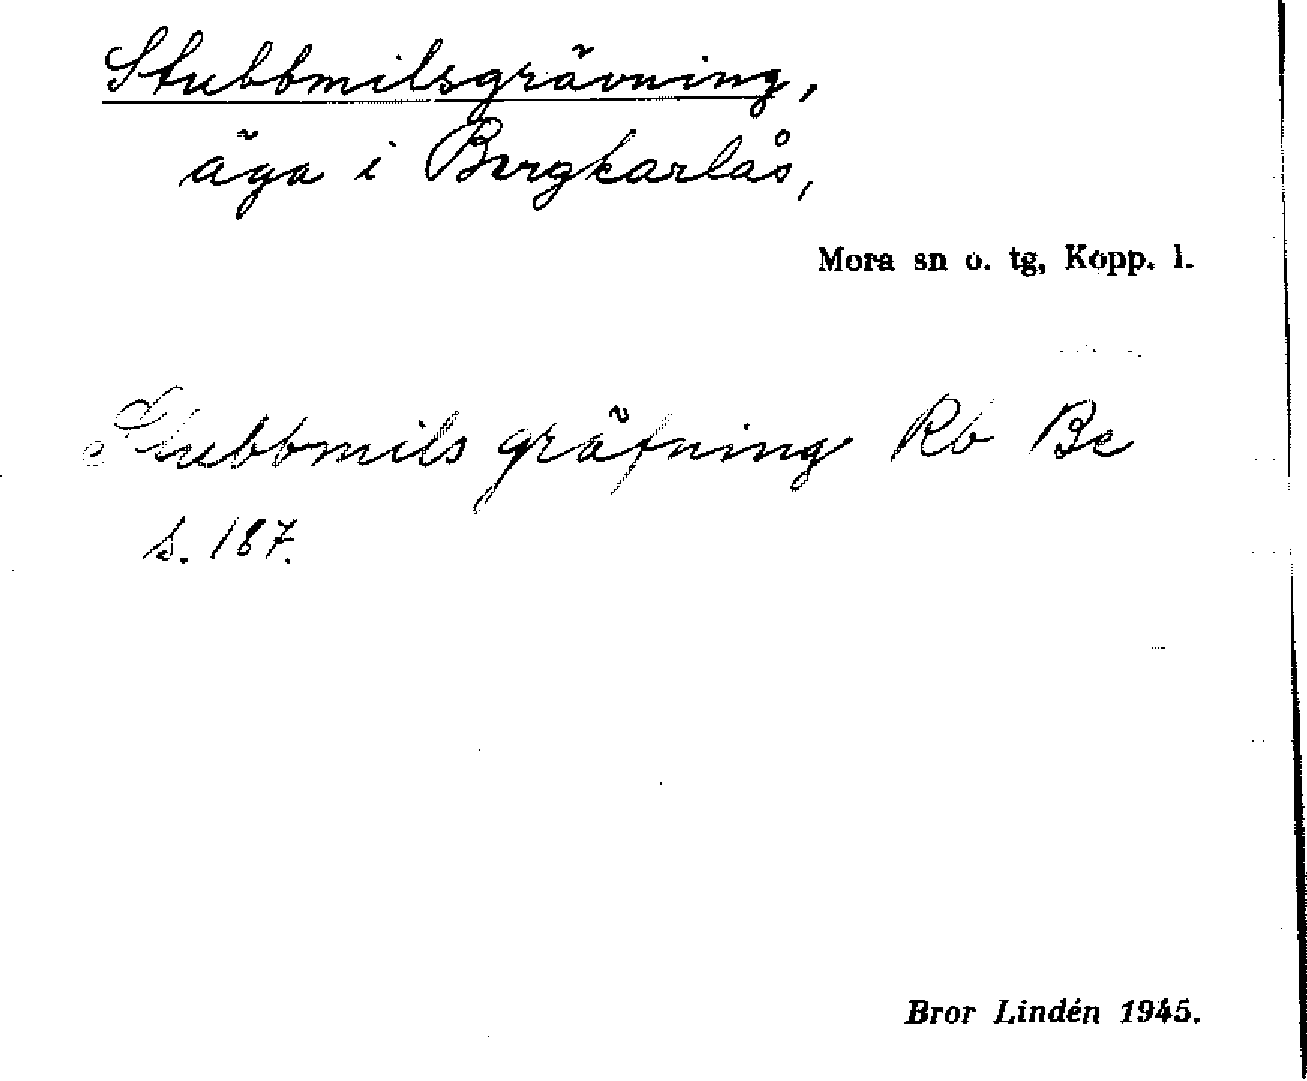 Stubbmilsgrävning,
äga i Bergkarlås,
Mora sn o. tg, Kopp. l.
Stubbmils gräfning Rb Bc
s. 187.
Bror Lindén 1945.